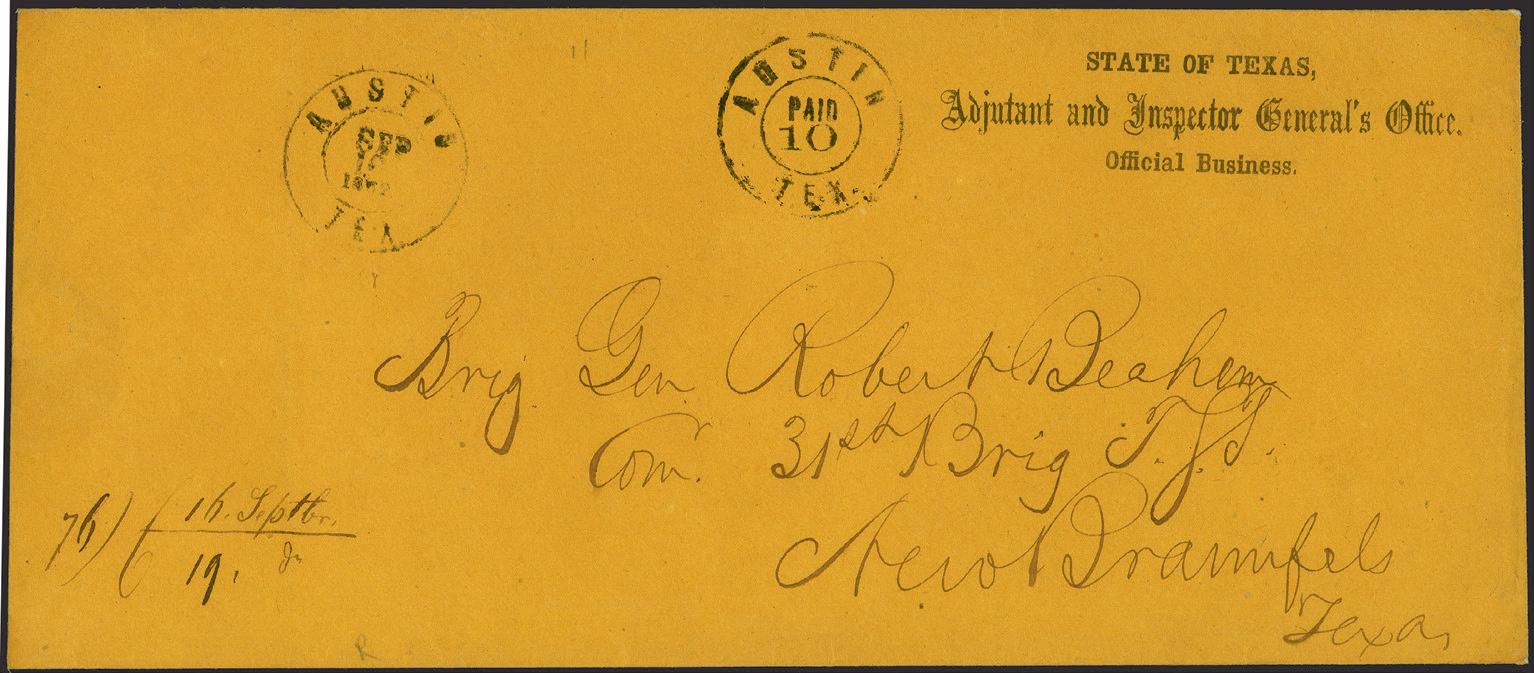 AUSTIN
SEP
TEX
AUSTIN
PAID
10
TEX.
STATE OF TEXAS,
Adjutant and Inspector General's Office.
Official Business.
Brig Gen Robert Beahem
Com. 31st Brig T.S.T.
New Braunfels
Texas
76) 16. Septbr.
19. do
R